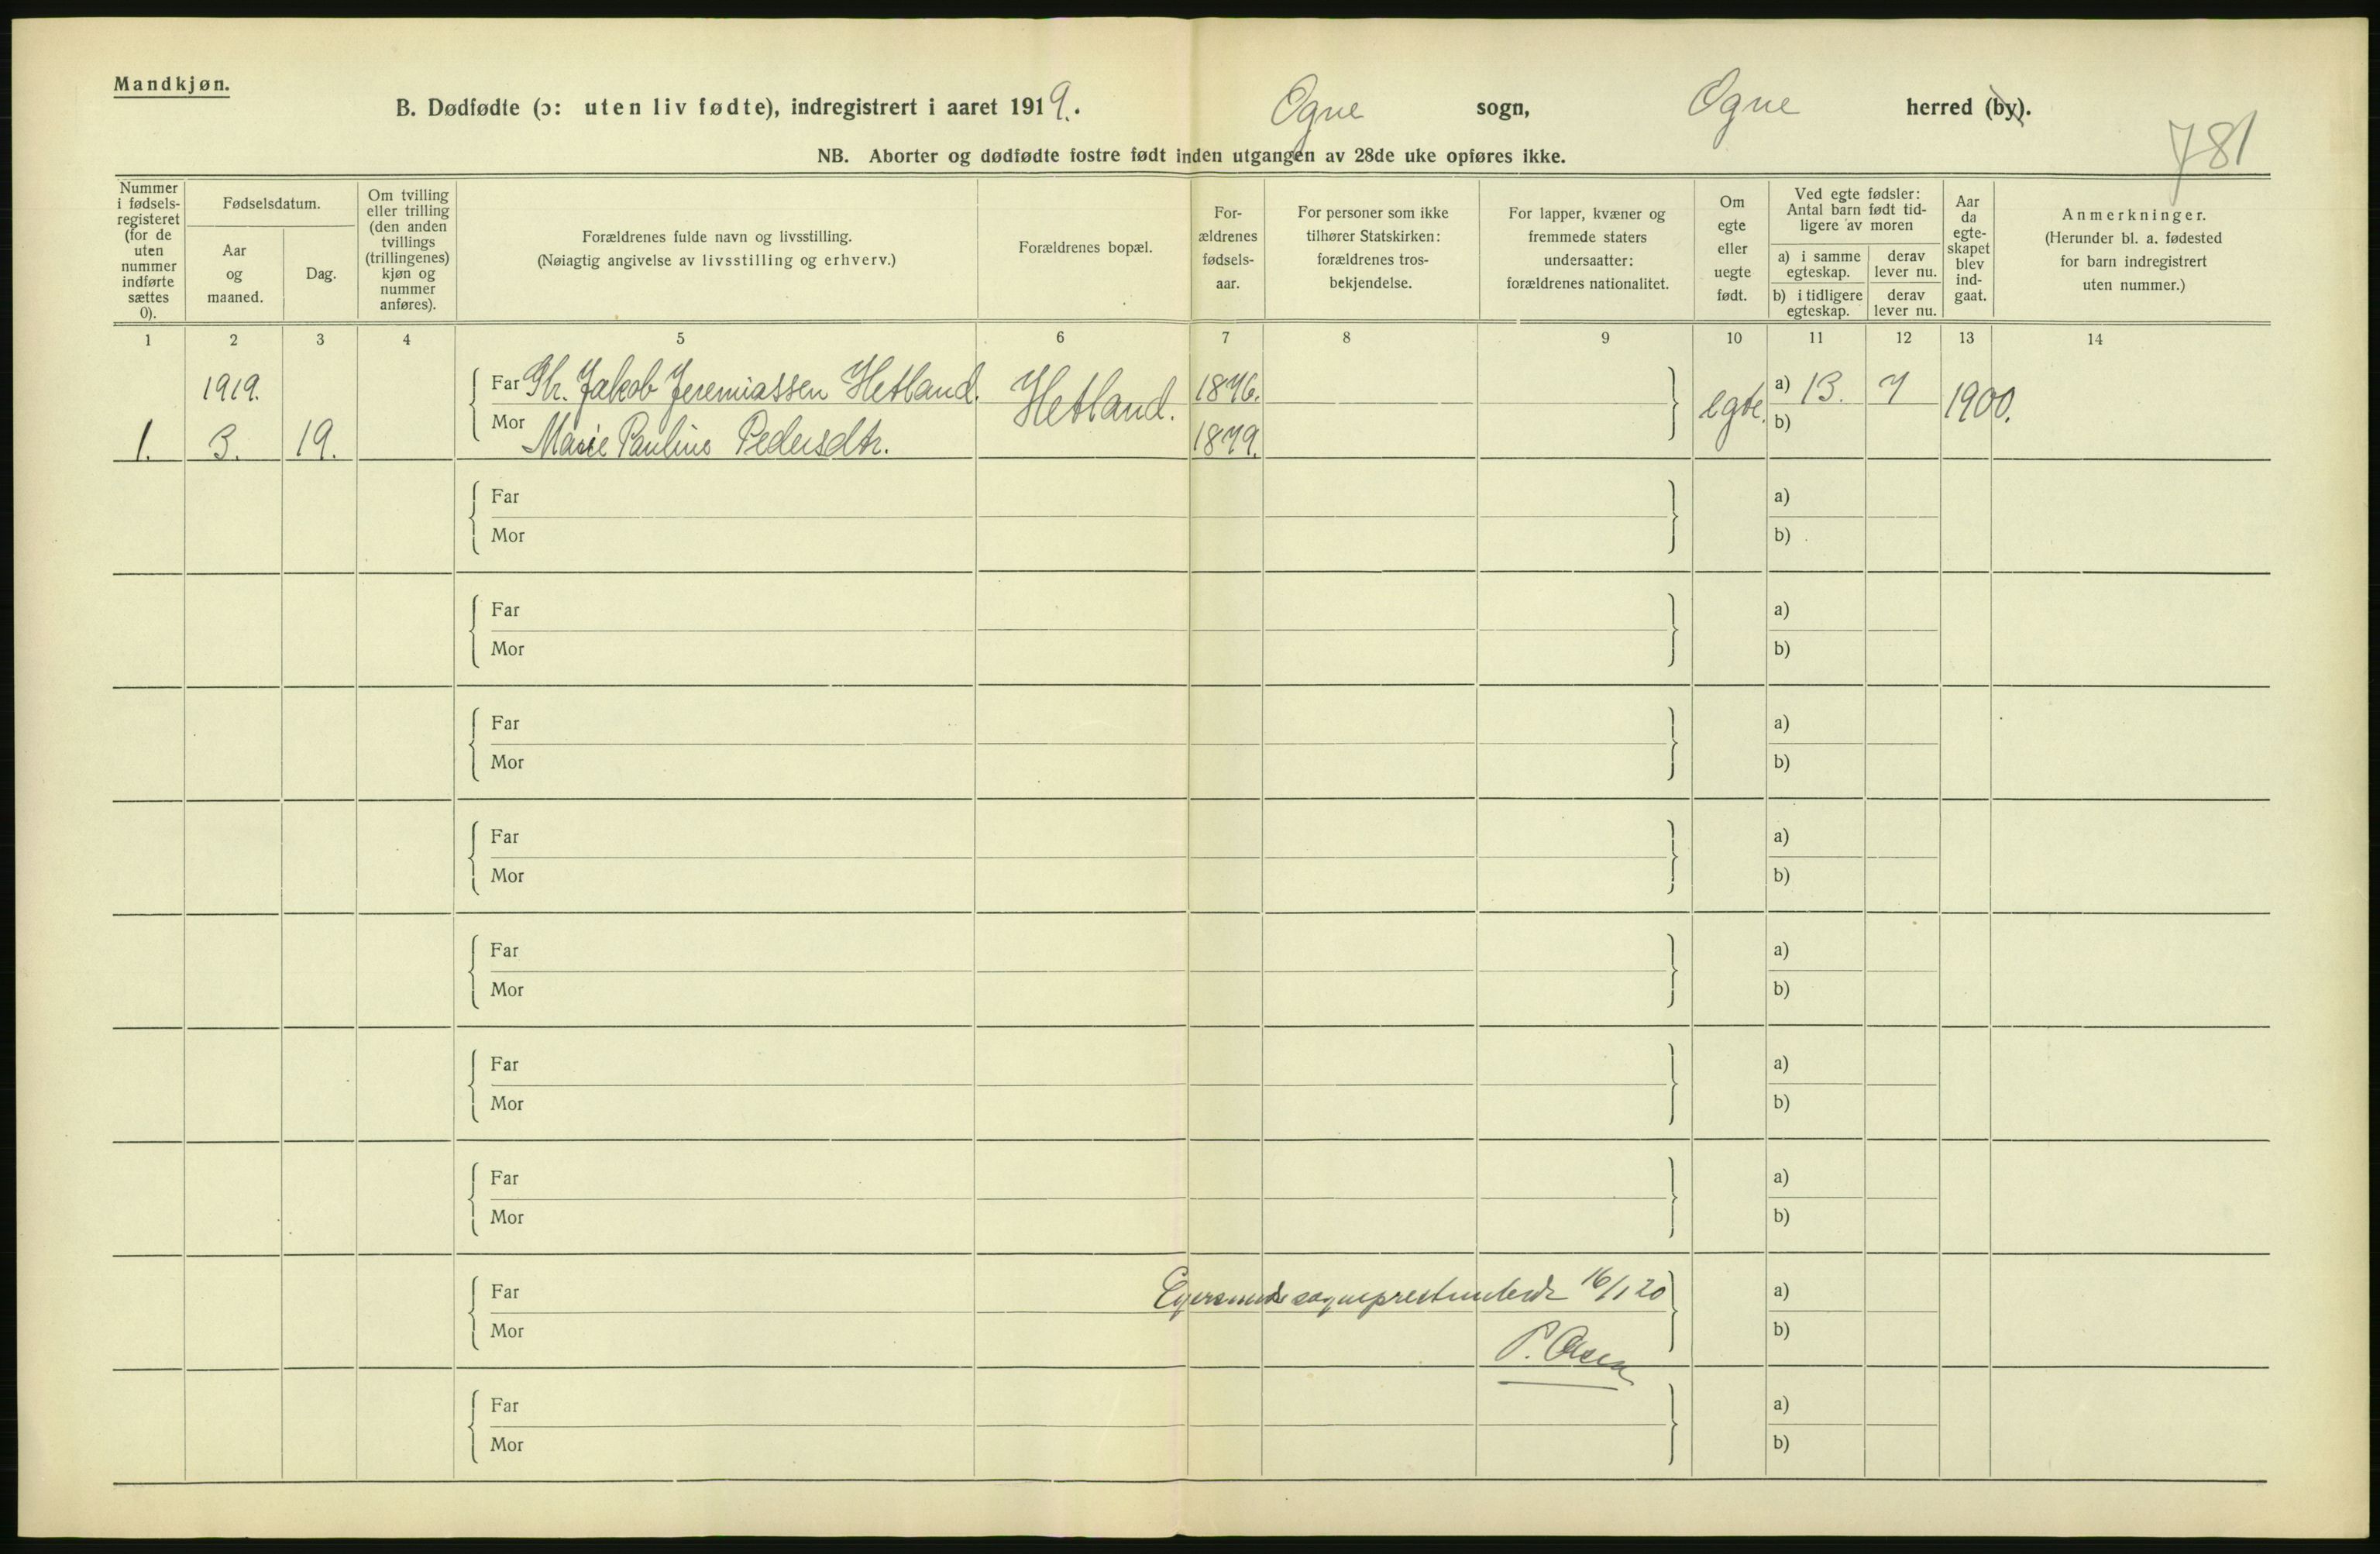 Mandkjøn.
B. Dødfødte (ɔ: uten liv fødte), indregistrert i aaret 1919. Ogne sogn, Ogne herred (by).
781
NB. Aborter og dødfødte fostre født inden utgangen av 28de uke opføres ikke.
Nummer i fødsels-registeret (for de uten nummer indførte sættes 0).
Fødselsdatum.
Aar og maaned.
Dag.
Om tvilling eller trilling (den anden tvillings (trillingenes) kjøn og nummer anføres).
Forældrenes fulde navn og livsstilling.
(Nøiagtig angivelse av livsstilling og erhverv.)
Forældrenes bopæl.
For-ældrenes fødsels-aar.
For personer som ikke tilhører Statskirken: forældrenes tros-bekjendelse.
For lapper, kvæner og fremmede staters undersaatter: forældrenes nationalitet.
Om egte eller uegte født.
Ved egte fødsler: Antal barn født tid-ligere av moren
a) i samme egteskap.
derav lever nu.
b) i tidligere egteskap.
derav lever nu.
Aar da egte-skapet blev ind-gaat.
Anmerkninger.
(Herunder bl. a. fødested for barn indregistrert uten nummer.)
1 2 3 4 5 6 7 8 9 10 11 12 13 14
1919. Far Gbr. Jakob Jeremiassen Hetland. Hetland. 1876. egte. a) 13. 7 1900.
1. 3. 19. Mor Marie Pauline Pedersdtr. 1879. b)
Far a)
Mor b)
Far a)
Mor b)
Far a)
Mor b)
Far a)
Mor b)
Far a)
Mor b)
Far a)
Mor b)
Far a)
Mor b)
Far Egersunds sogneprestembede 16/1 20 a)
Mor b)
P. Olsen
Far a)
Mor b)